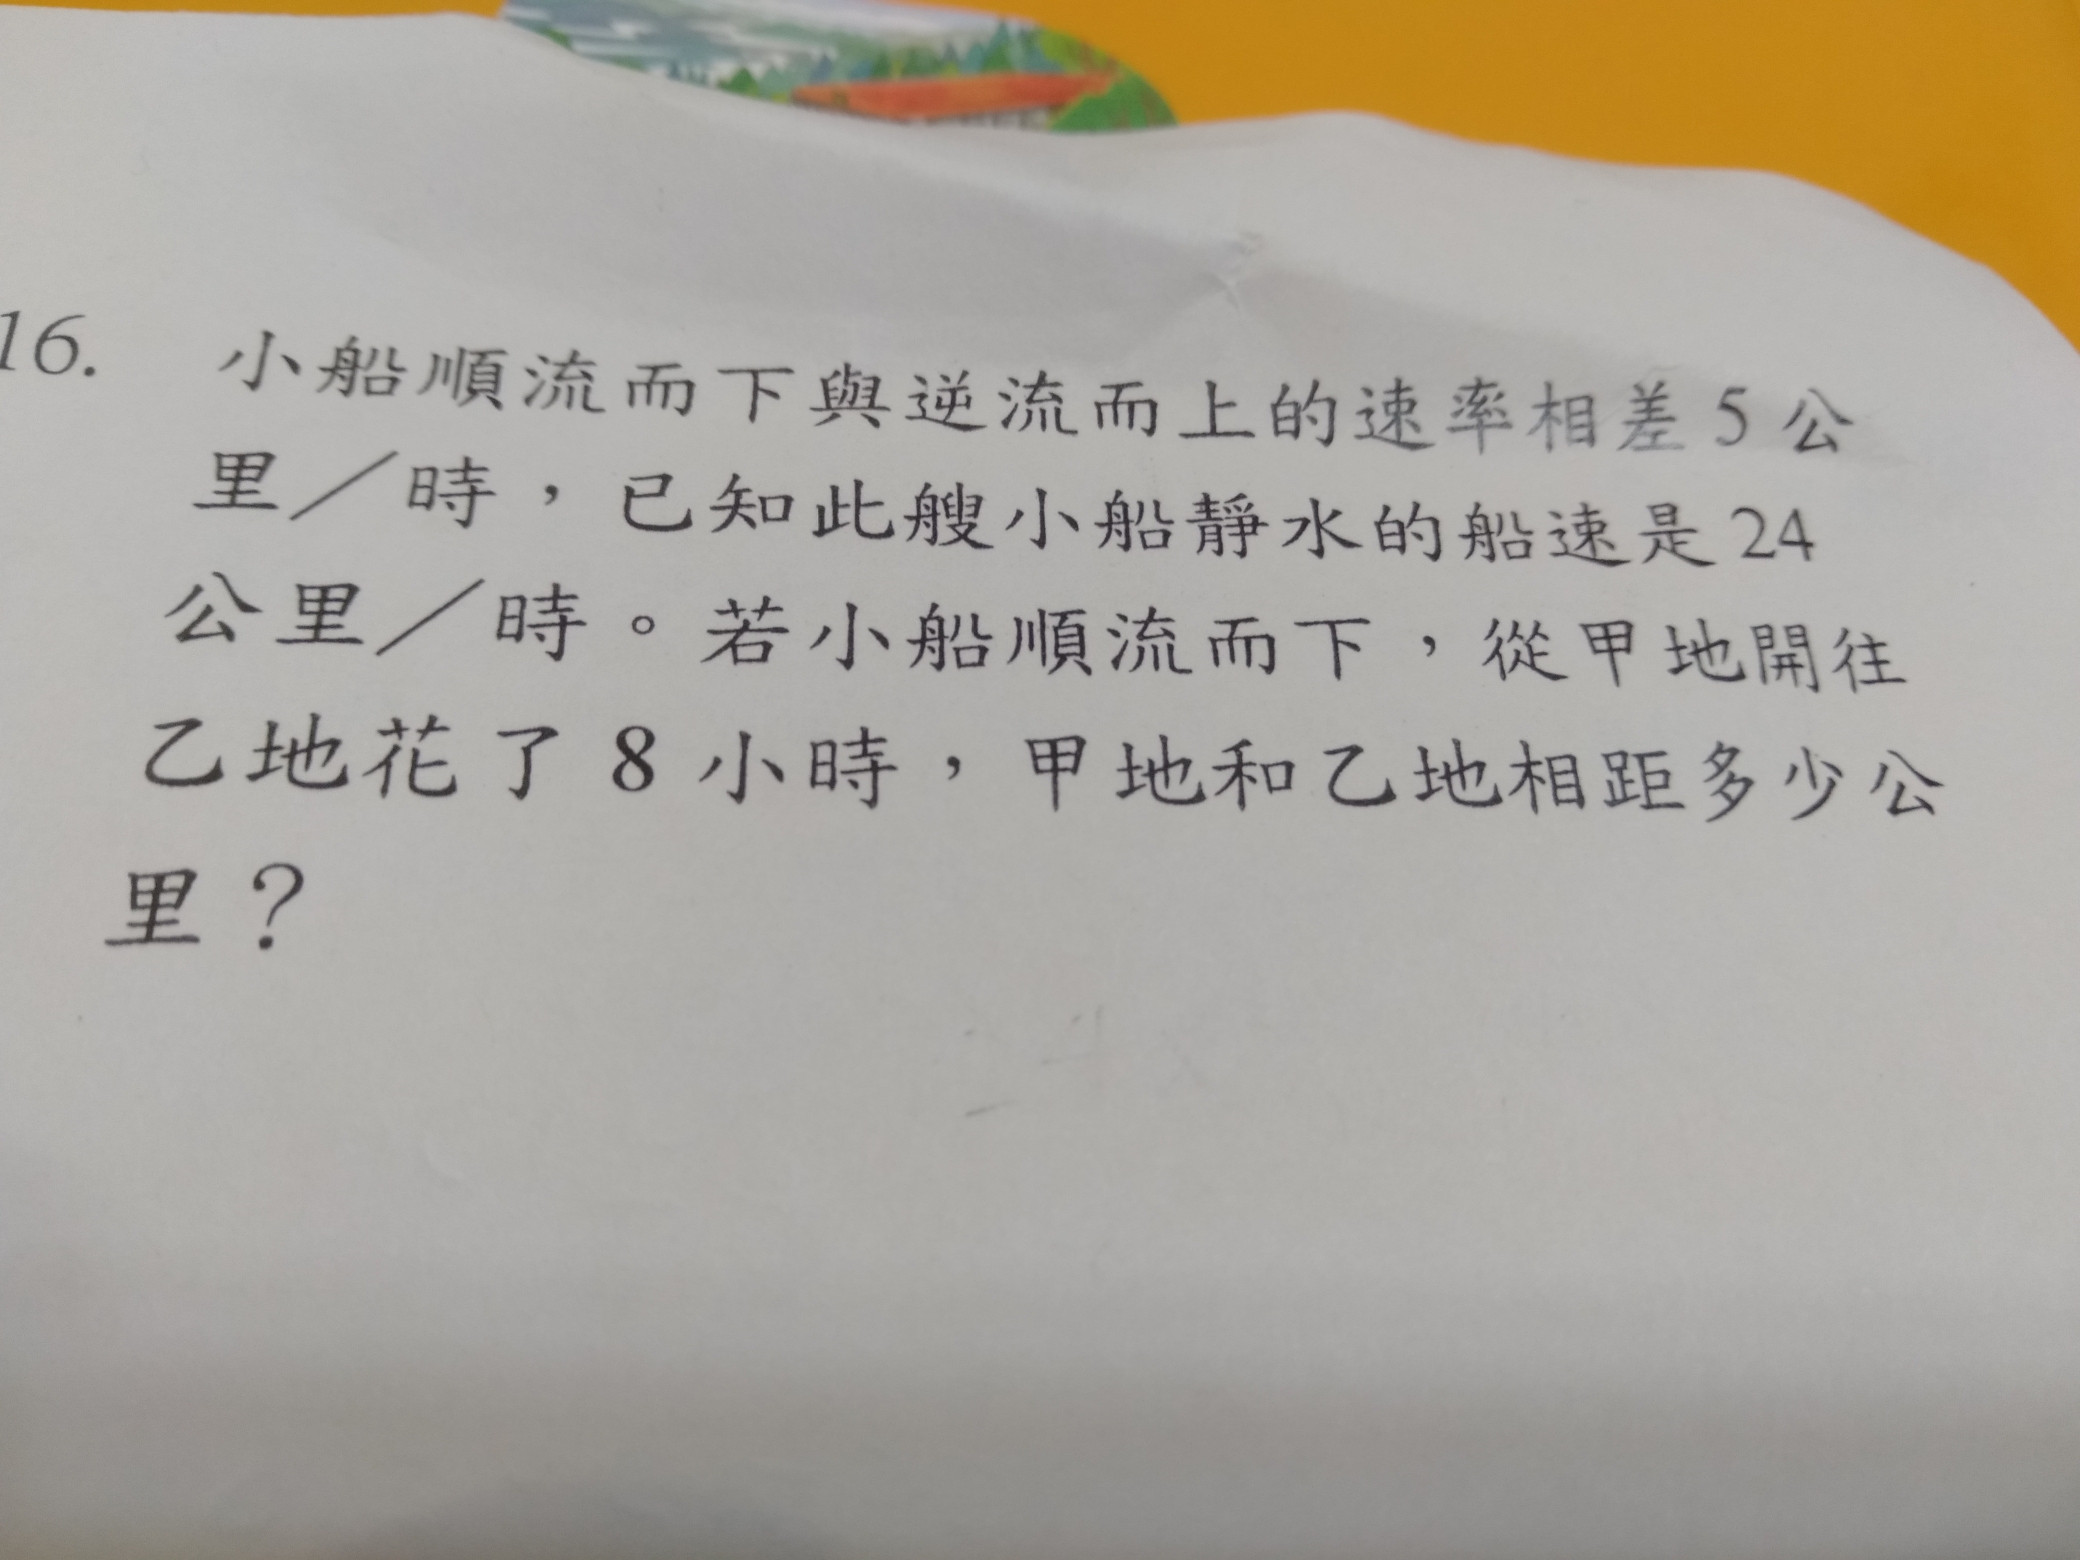 16. 小船順流而下與逆流而上的速率相差5公
里／時，已知此艘小船靜水的船速是24
公里／時。若小船順流而下，從甲地開往
乙地花了8小時，甲地和乙地相距多少公
里？